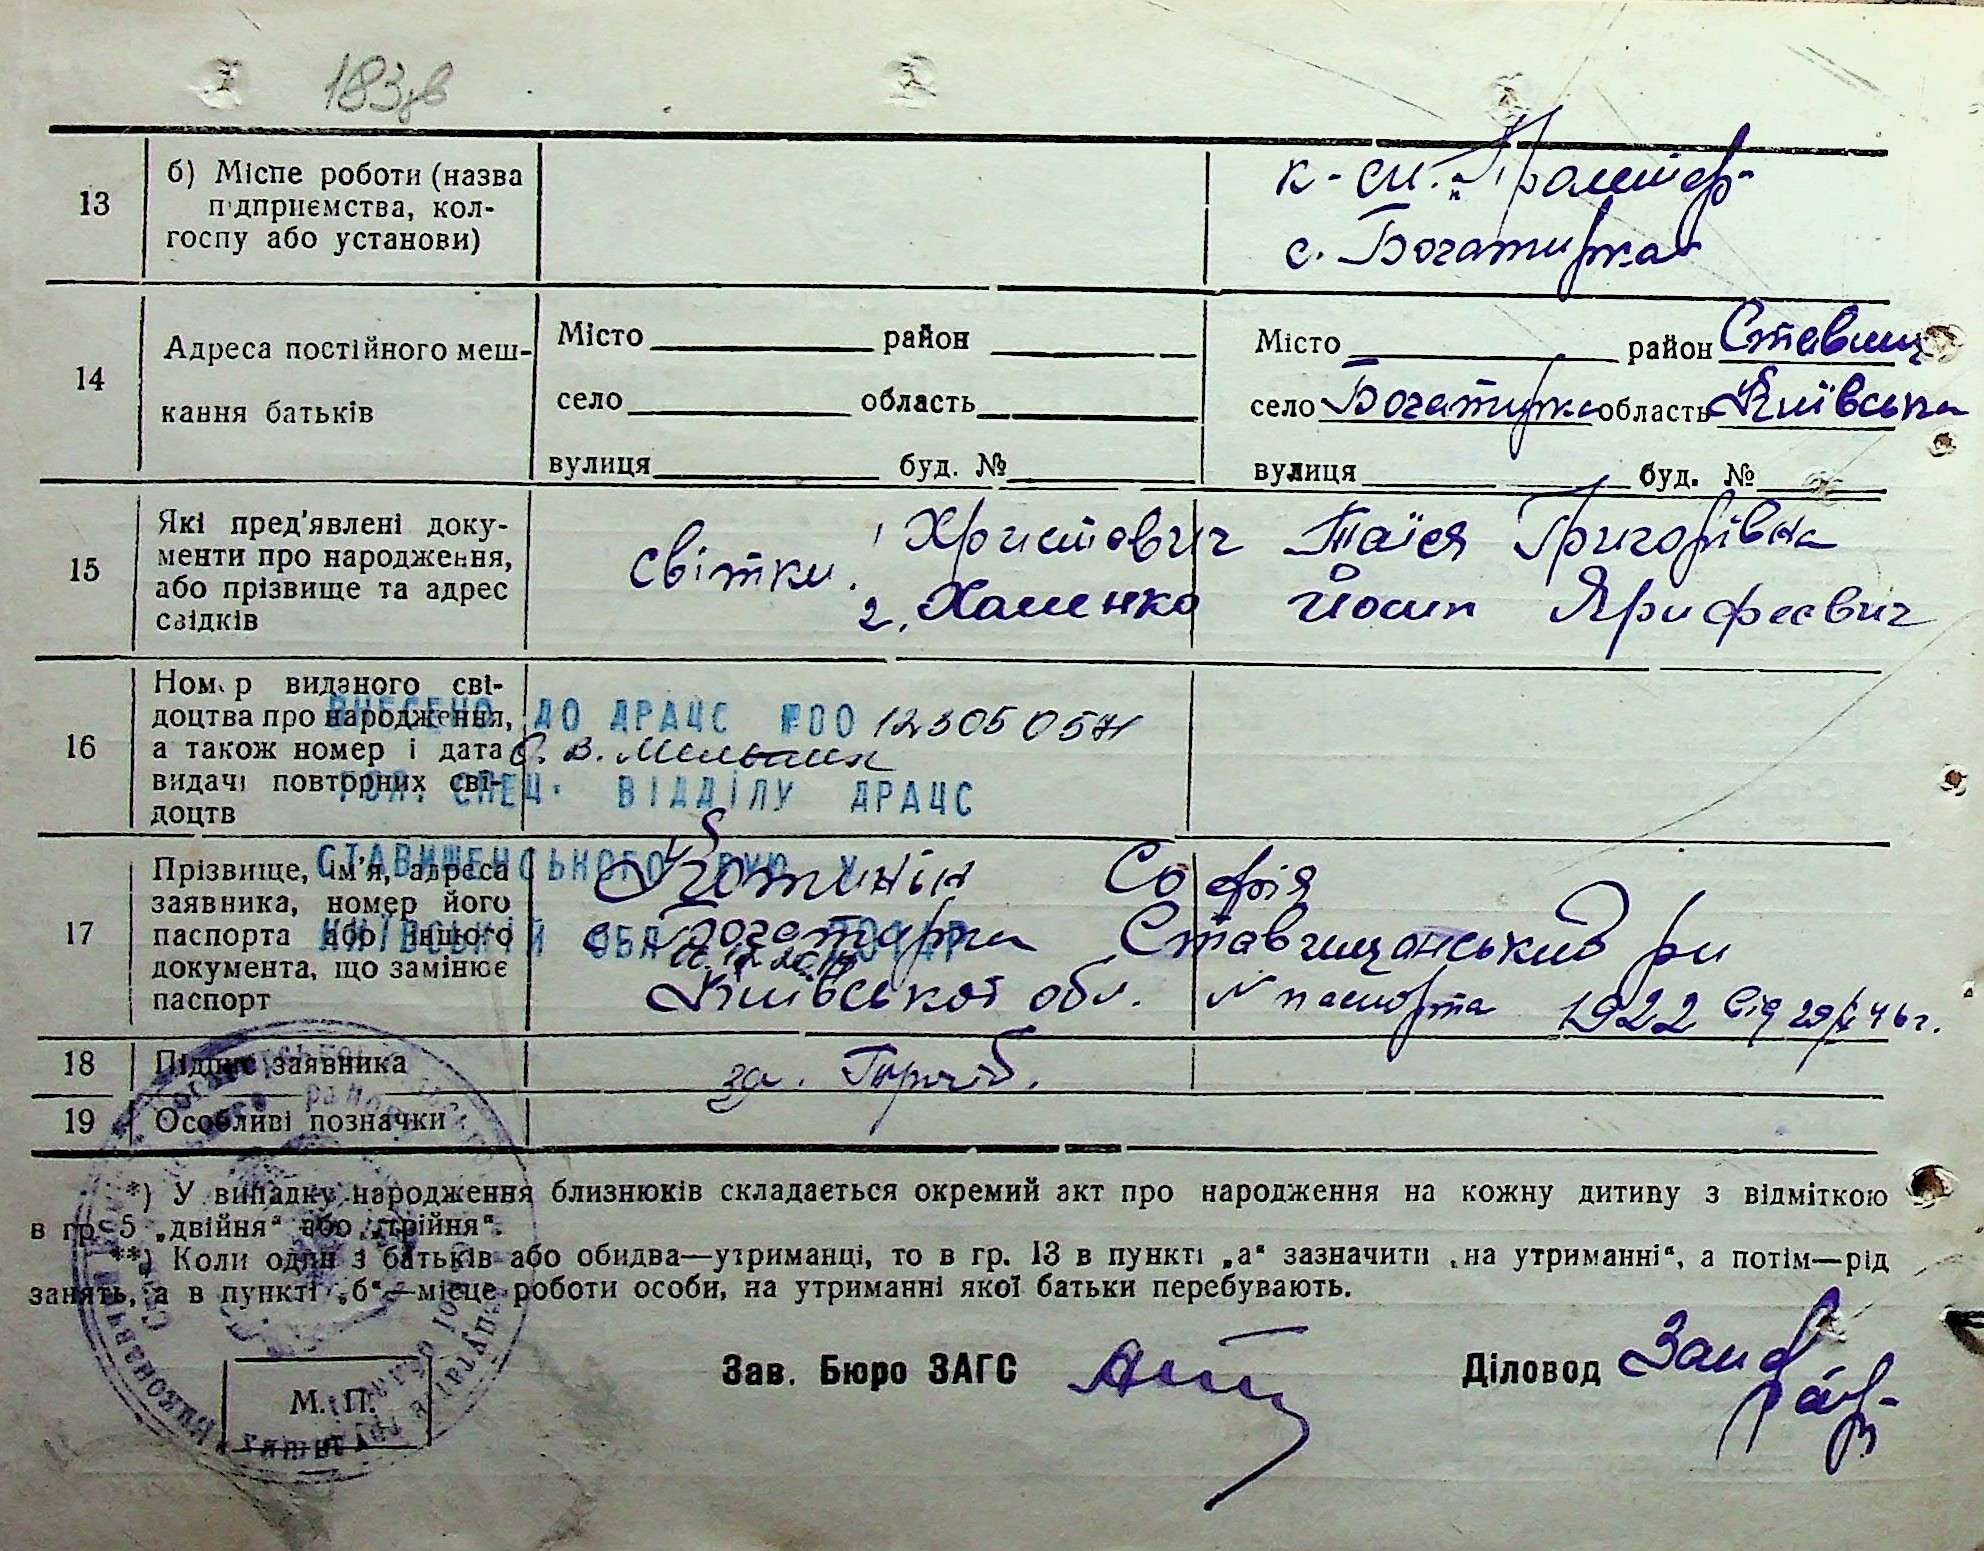 183зв
13
б) Місце роботи (назва
підприємства, кол-
госпу або установи)
с. Богатирка
14
Адреса постійного меш-
кання батьків
Місто район
село область
вулиця буд. №
Місто район Ставищ
село Богатирка область Київська
вулиця буд. №
15
Які пред'явлені доку-
менти про народження,
або прізвище та адрес
свідків
Світки. 1 Христович Таїся Григорівна
2, Хоменко Йосип
16
Номер виданого сві-
доцтва про народження,
а також номер і дата
видачі повторних сві-
доцтв
ВНЕСЕНО ДО ДРАЦС №00 123050571
СПЕЦ. ВІДДІЛУ ДРАЦС
СТАВИЩЕНСЬКОГО РУЮ У
КИЇВСЬКІЙ ОБЛ
17
Прізвище, ім'я, адреса
заявника, номер його
паспорта або іншого
документа, що замінює
паспорт
Софія
с Богатирка Ставищанський р-н
Київської обл. N паспорта 1922 від 29/ 46 г.
18
Підпис заявника
за.
19
Особливі позначки
*) У випадку народження близнюків складається окремий акт про народження на кожну дитину з відміткою
в гр. 5 „двійня“ або „трійня“.
**) Коли один з батьків або обидва—утриманці, то в гр. 13 в пункті „а“ зазначити „на утриманні“, а потім—рід
занять, а в пункті „б“—місце роботи особи, на утриманні якої батьки перебувають.
Зав. Бюро ЗАГС
Діловод
М. П.